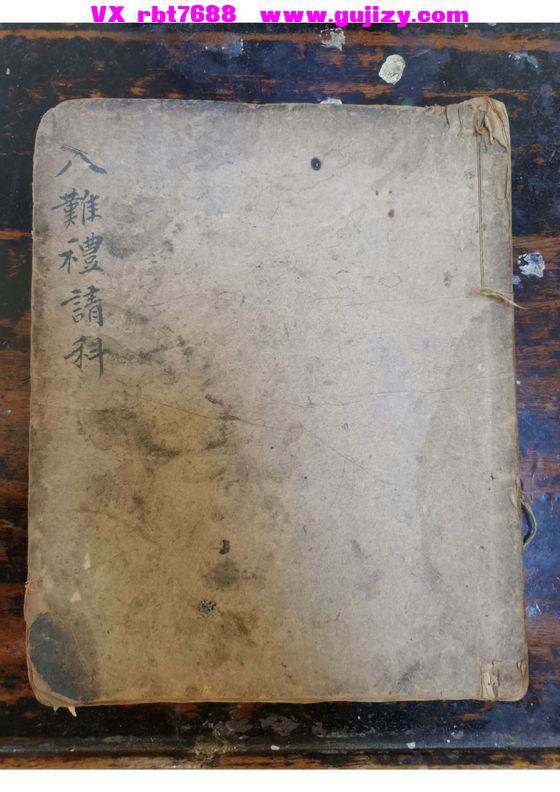 VX rbt7688 www.gujizy.com
八難禮請科